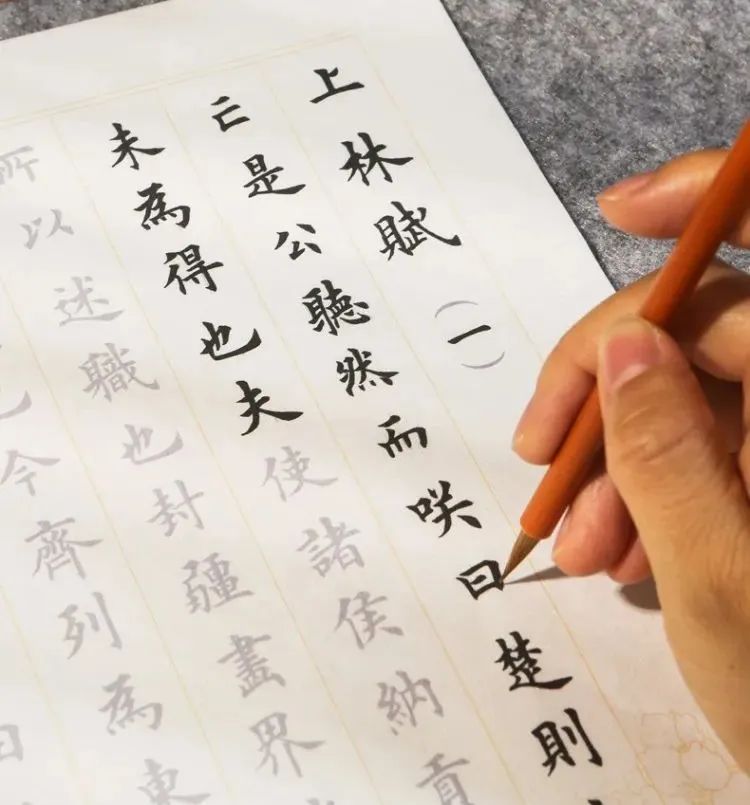 上林賦（一）
亡是公聽然而咲曰楚則
未為得也夫使諸侯納貢
所以述職也封疆畫界
也今齊列為東